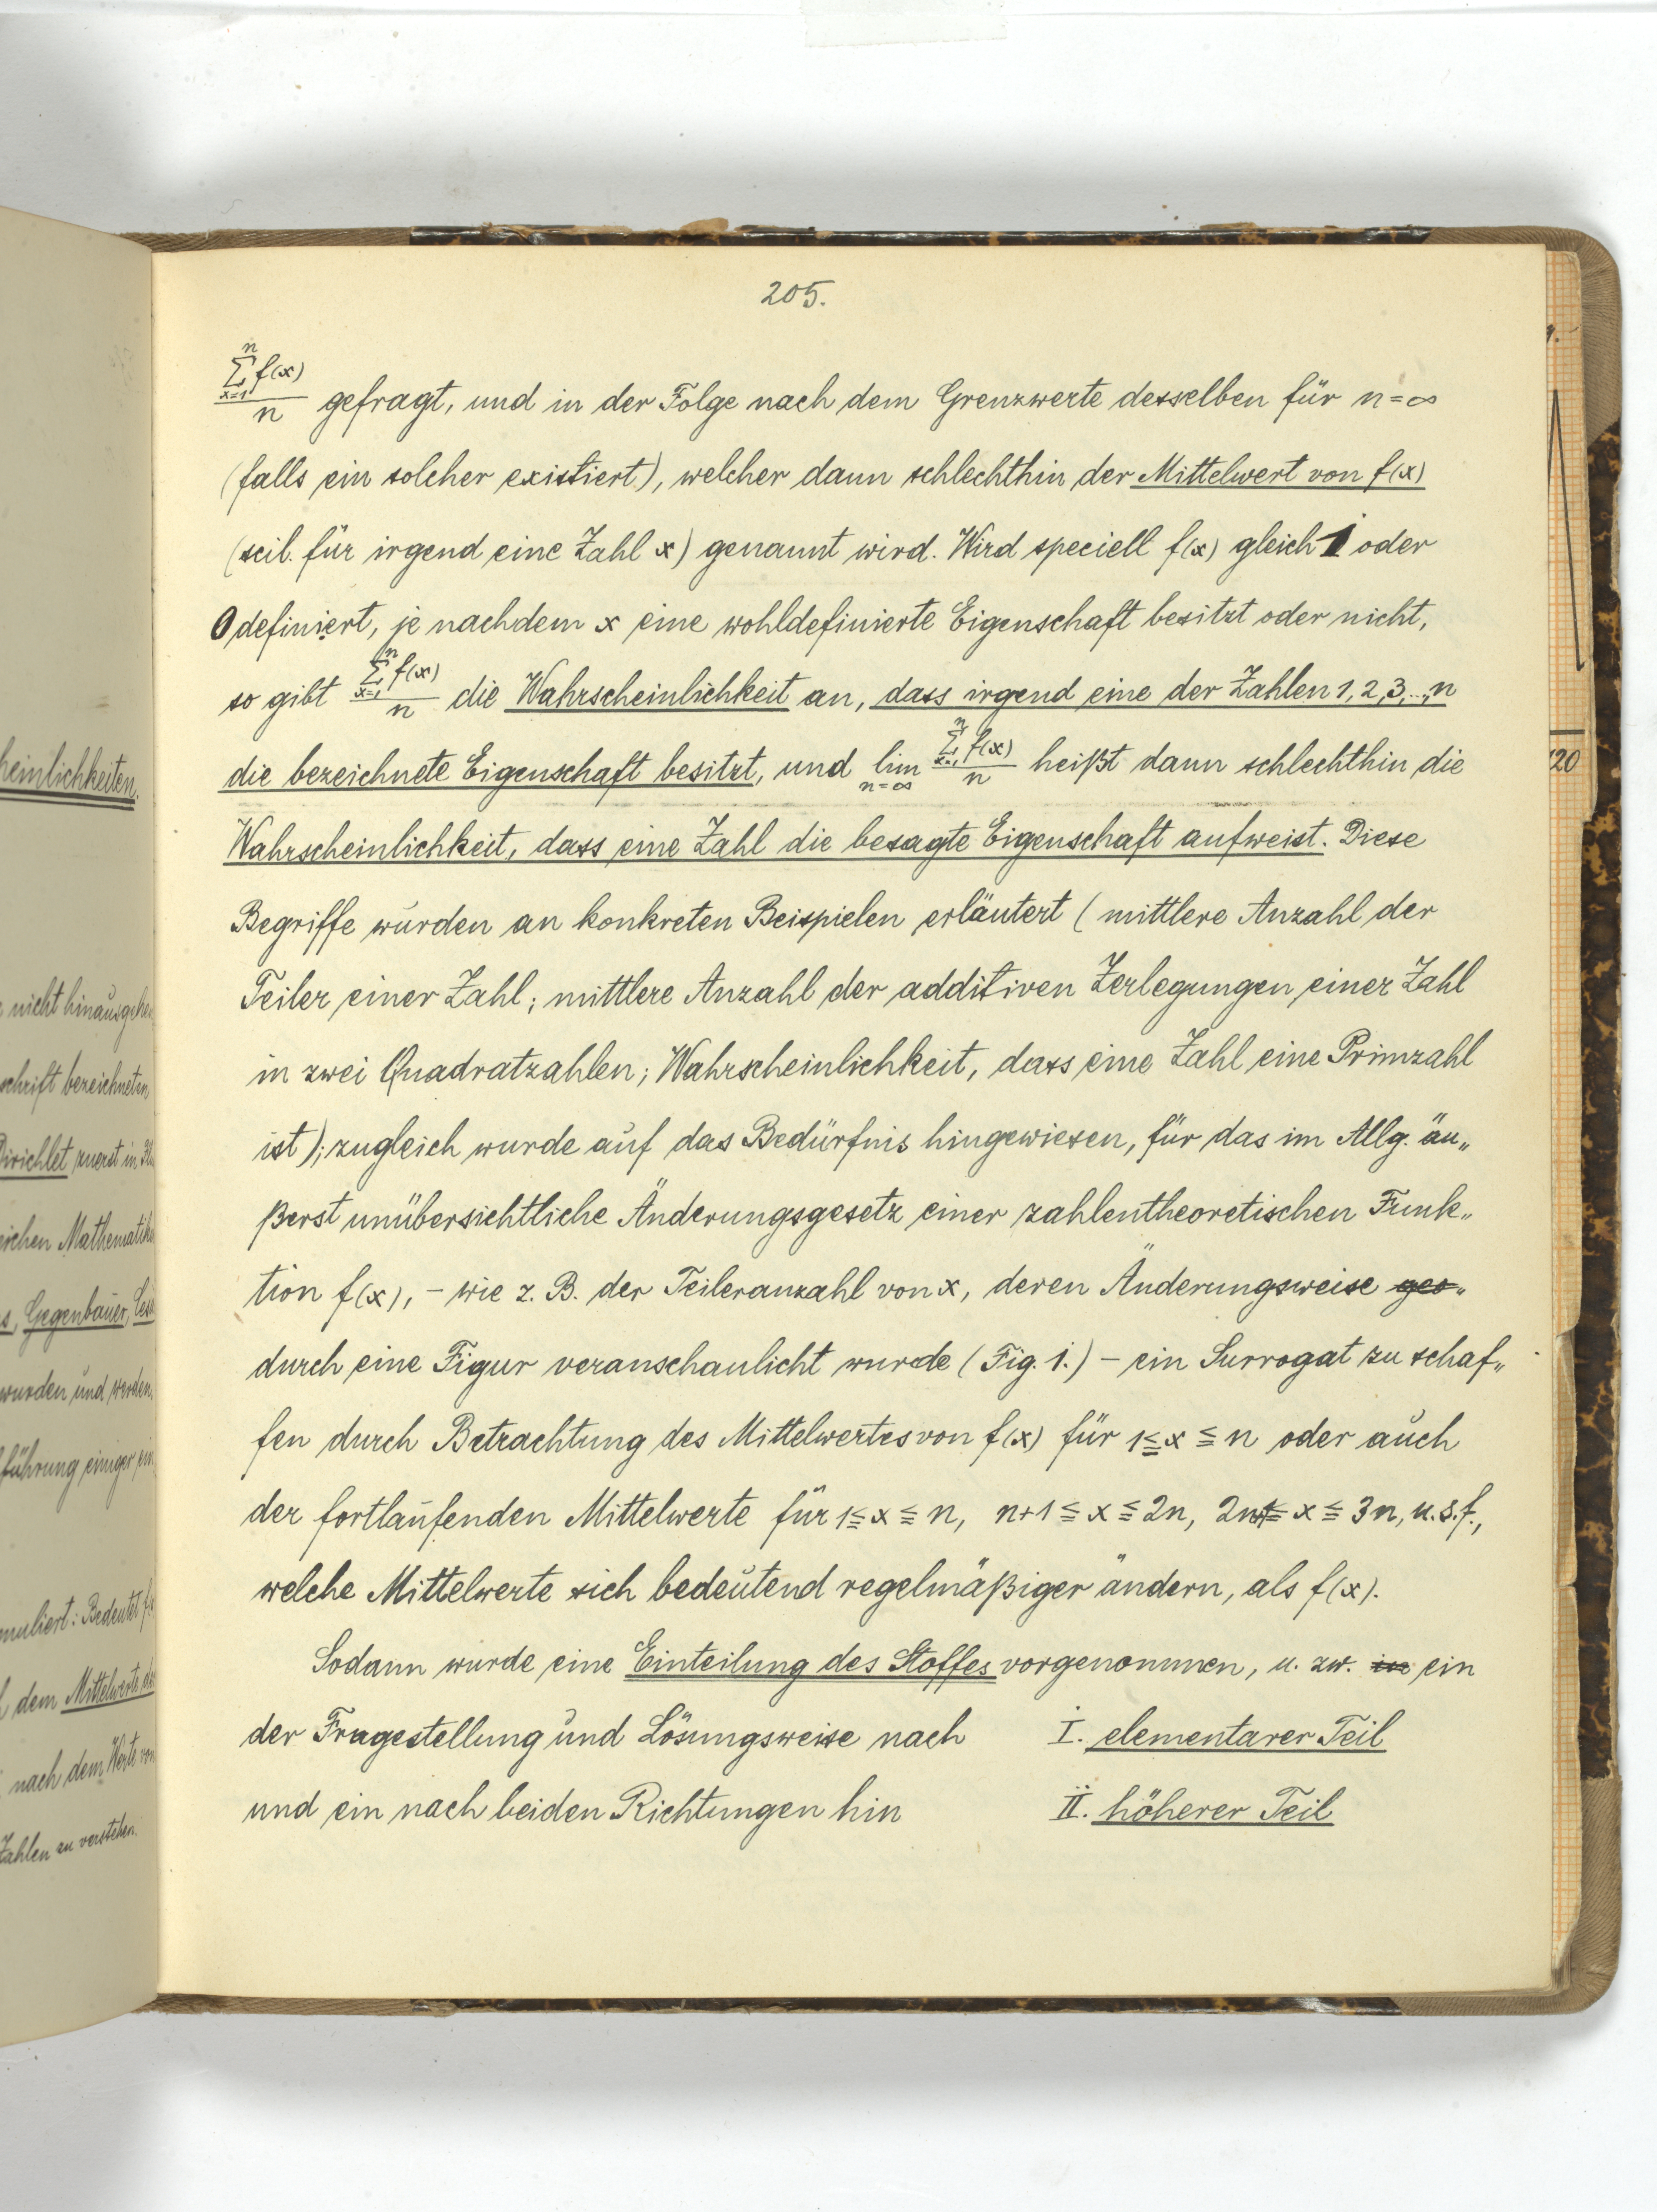 heinlichkeiten.
nicht hinausgehen
schrift bezeichneten
Dirichlet zuerst in
eichen Mathematik
s, Gegenbauer,
wurden und werden
führung einiger
muliert: Bedeutet
dem Mittelwerte
nach dem Werte von
Zahlen zu verstehen.
205.
$\frac{\sum_{x=1}^{n} f(x)}{n}$ gefragt, und in der Folge nach dem Grenzwerte desselben für n=∞
(falls ein solcher existiert), welcher dann schlechthin der Mittelwert von f(x)
(scil. für irgend eine Zahl x) genannt wird. Wird speciell f(x) gleich 1 oder
0 definiert, je nachdem x eine wohldefinierte Eigenschaft besitzt oder nicht,
so gibt $\frac{\sum_{x=1}^{n} f(x)}{n}$ die Wahrscheinlichkeit an, dass irgend eine der Zahlen 1, 2, 3, ..., n
die bezeichnete Eigenschaft besitzt, und $\lim_{n=\infty} \frac{\sum_{x=1}^{n} f(x)}{n}$ heißt dann schlechthin die
Wahrscheinlichkeit, dass eine Zahl die besagte Eigenschaft aufweist. Diese
Begriffe wurden an konkreten Beispielen erläutert (mittlere Anzahl der
Teiler einer Zahl; mittlere Anzahl der additiven Zerlegungen einer Zahl
in zwei Quadratzahlen; Wahrscheinlichkeit, dass eine Zahl eine Primzahl
ist); zugleich wurde auf das Bedürfnis hingewiesen, für das im Allg. äu„
ßerst unübersichtliche Änderungsgesetz einer zahlentheoretischen Funk„
tion f(x), – wie z. B. der Teileranzahl von x, deren Änderungsweise ges„
durch eine Figur veranschaulicht wurde (Fig. 1.) – ein Surrogat zu schaf„
fen durch Betrachtung des Mittelwertes von f(x) für 1≦x≦n oder auch
der fortlaufenden Mittelwerte für 1≦x≦n, n+1≦x≦2n, 2n+1≦x≦3n, u.s.f.,
welche Mittelwerte sich bedeutend regelmäßiger ändern, als f(x).
Sodann wurde eine Einteilung des Stoffes vorgenommen, u. zw. in ein
der Fragestellung und Lösungsweise nach I. elementarer Teil
und ein nach beiden Richtungen hin II. höherer Teil
120